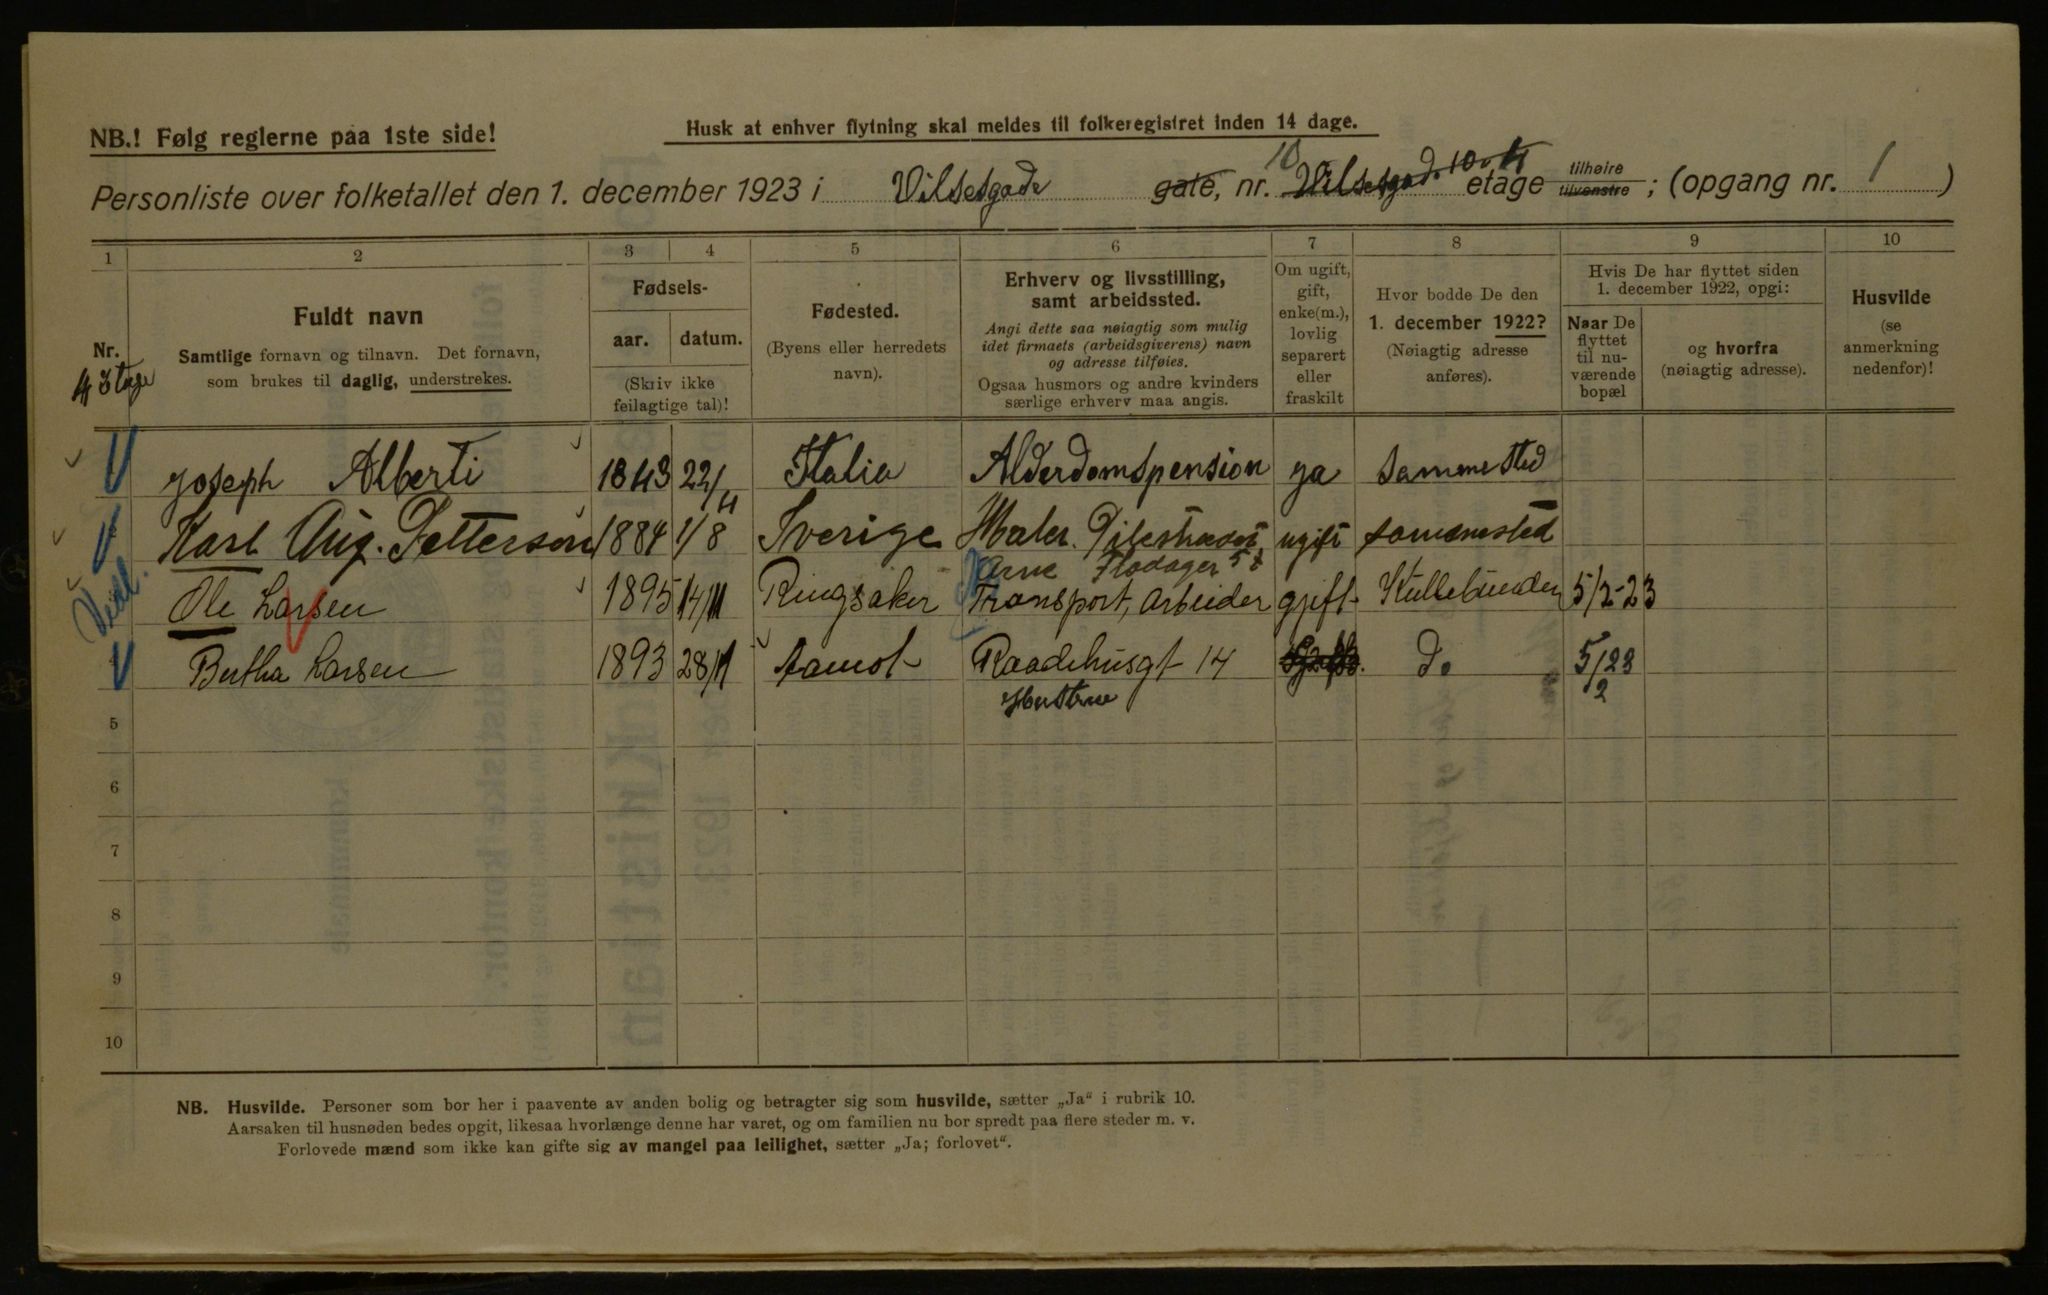 NB.! Følg reglerne paa 1ste side!
Husk at enhver flytning skal meldes til folkeregistret inden 14 dage.
Personliste over folketallet den 1. december 1923 i Vilsesgade gate, nr. 10 Vilsesgade 10. 4 etage tilhøire tilvenstre ; (opgang nr. 1 )
1 2 3 4 5 6 7 8 9 10
Nr.
4 Etage
Fuldt navn
Samtlige fornavn og tilnavn. Det fornavn,
som brukes til daglig, understrekes.
Fødsels-
aar. datum.
(Skriv ikke
feilagtige tal)!
Fødested.
(Byens eller herredets
navn).
Erhverv og livsstilling,
samt arbeidssted.
Angi dette saa nøiagtig som mulig
idet firmaets (arbeidsgiverens) navn
og adresse tilføies.
Ogsaa husmors og andre kvinders
særlige erhverv maa angis.
Om ugift,
gift,
enke(m.),
lovlig
separert
eller
fraskilt
Hvor bodde De den
1. december 1922?
(Nøiagtig adresse
anføres).
Hvis De har flyttet siden
1. december 1922, opgi:
Naar De
flyttet
til nu-
værende
bopæl
og hvorfra
(nøiagtig adresse).
Husvilde
(se
anmerkning
nedenfor)!
Joseph Alberti 1843 22/4 Italia Alderdomspension ja Sammested
Karl Aug. Petterson 1884 1/8 Sverige Maler. Pilestrædet ugift sammested
Arne 5
Ole Larsen 1895 14/11 Ringsaker Transport, Arbeider gift Kullebunden 5/2-23
Bertha Larsen 1893 28/11 Aamot Raadehusgt 14 Do 5/2 23
Hustrue
5
6
7
8
9
10
NB. Husvilde. Personer som bor her i paavente av anden bolig og betragter sig som husvilde, sætter „Ja“ i rubrik 10.
Aarsaken til husnøden bedes opgit, likesaa hvorlænge denne har varet, og om familien nu bor spredt paa flere steder m. v.
Forlovede mænd som ikke kan gifte sig av mangel paa leilighet, sætter „Ja; forlovet“.